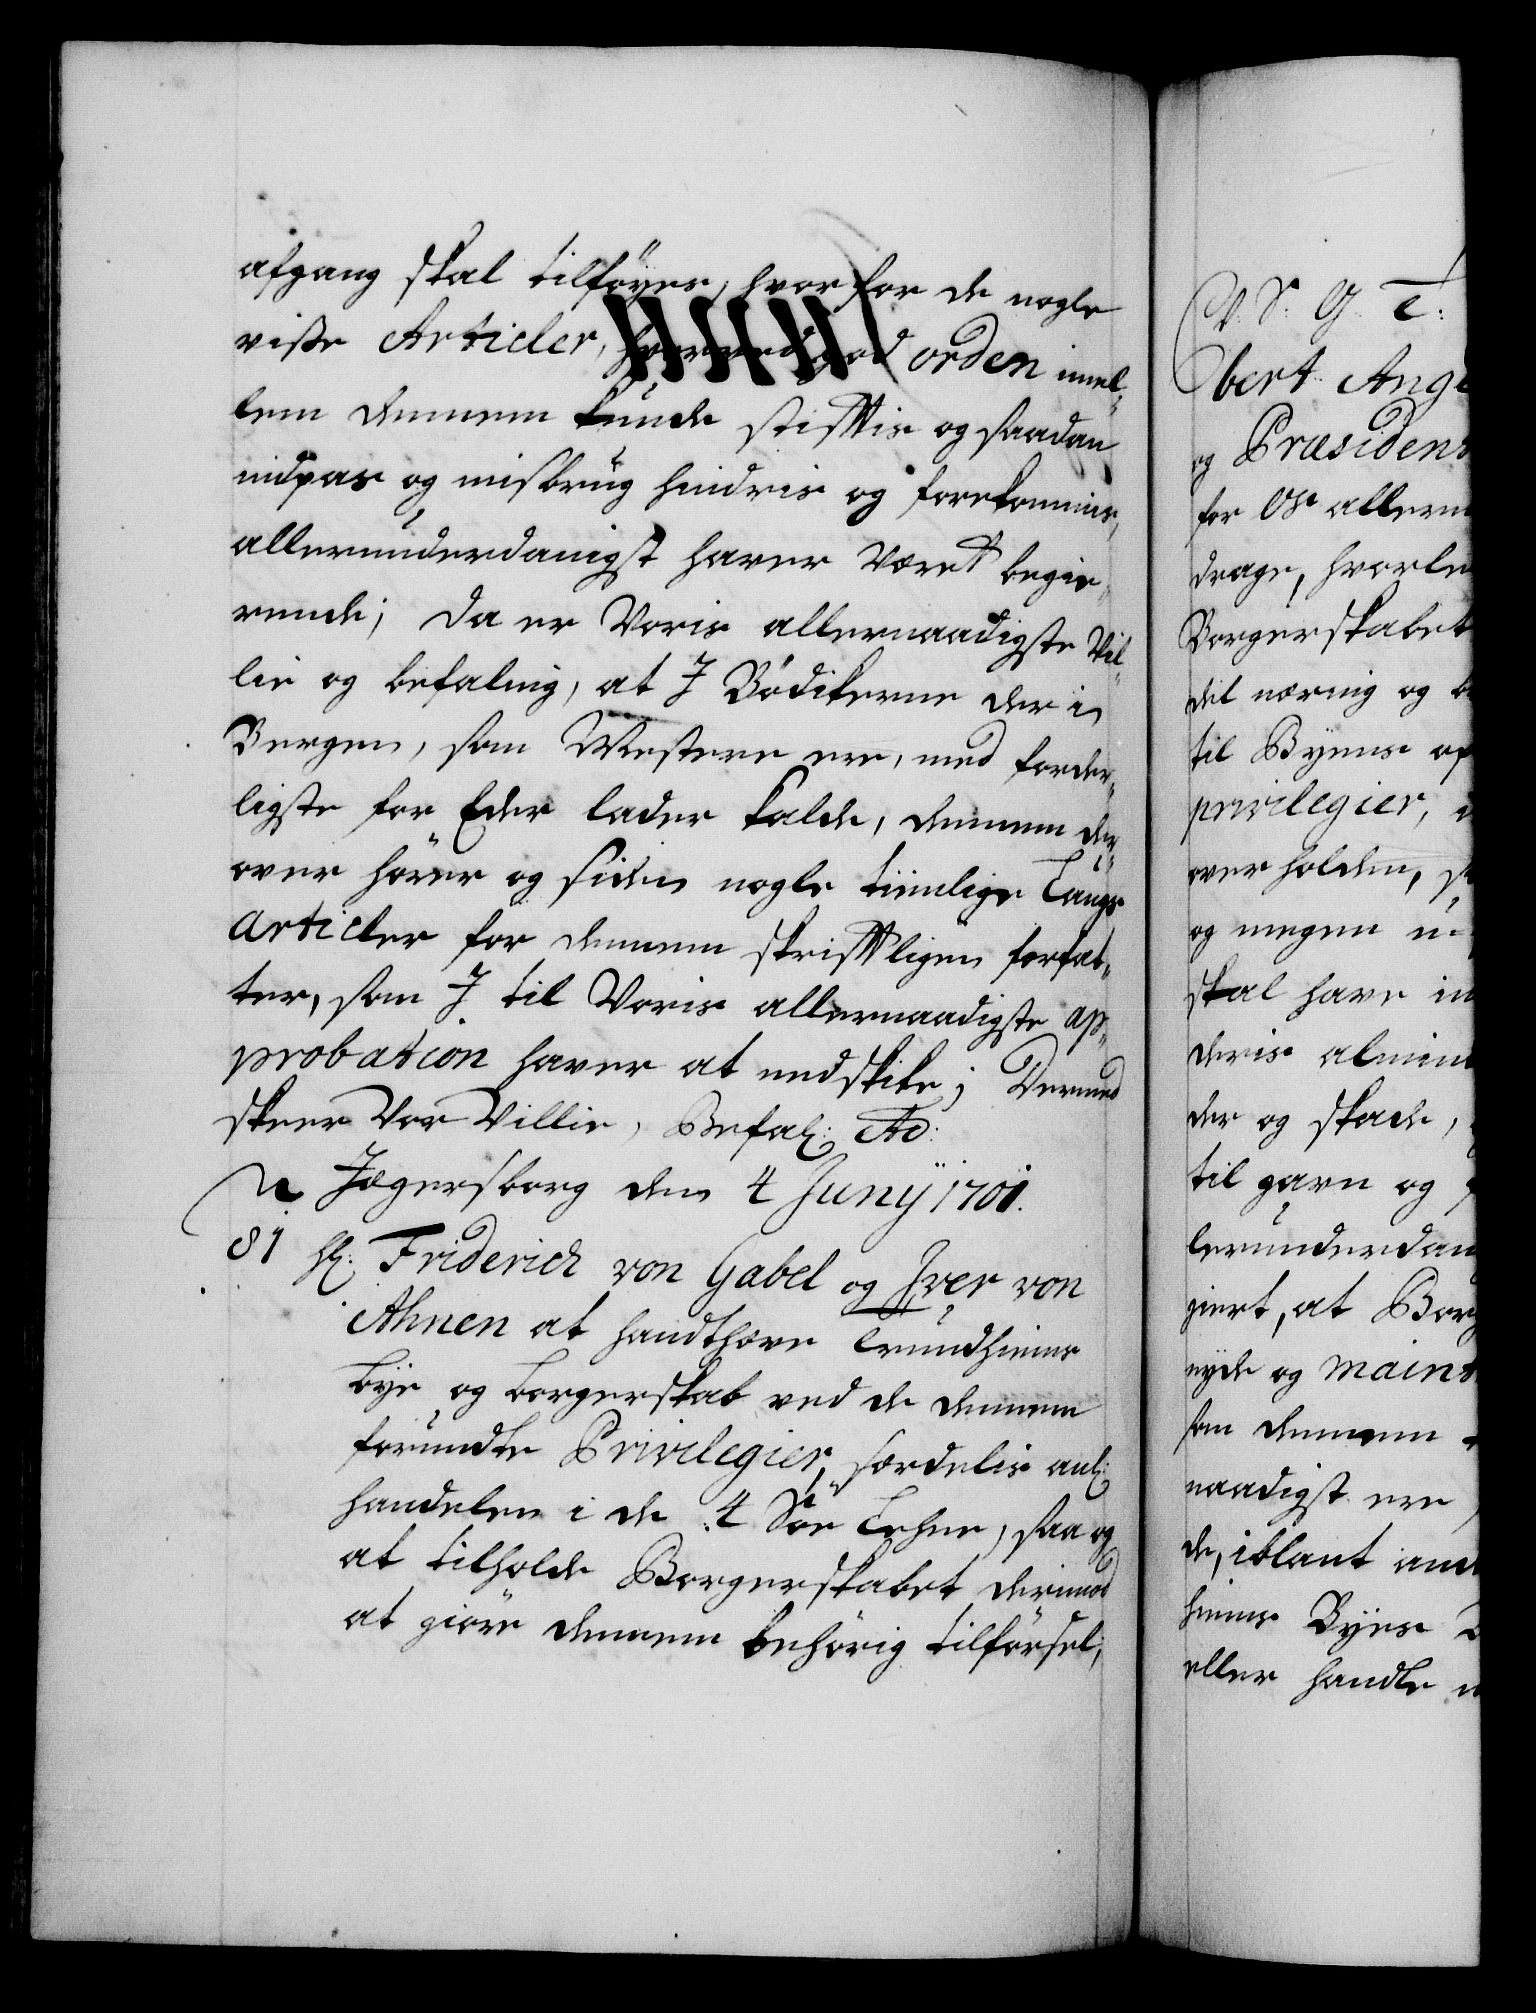 afgang skal tilføyes, hvorfor de nogle
visse Articler, hvorved god orden imel-
lem dennem kunde stifftis og saadan
midpas og misbrug hindris og forekommis,
allerunderdanigst haver været begie-
rende; Da er Voris allernaadigste Vil-
lie og befaling, at I Bødikerne der i
Bergen, som Mestere ere, med forder-
ligste for Eder lader kalde, dennem der-
over hører og siden nogle tiimlige Laugs
Articler for dennem skrifftligen forfat-
ter, som I til Voris allernaadigste ap-
probation haver at nedskike; Dermed
skeer Vor Villie, Befal: Ad:
Jægersborg den 4 Junÿ 1701.
81 H: Friderich von Gabel og Iver von
Ahnen at handthæve Trundhiems
bye og borgerskab ved de dennem
forundte Privilegier, særdelis anl:
handelen i de 4 Søe Lehne, saa og
at tilholde Borgerskabet derimod
at giøre dennem behørig tilførsel,
V. S. G. T:
bert Ang
og Præsident
for Os allern
drage, hvorle
Borgerskabet
del næring og b
til Byens op
privilegier,
over holden,
og megen u
skal have in
deris almin
der og skade,
til gavn og
lerunderdan
giert, at Borg
nyde og maint
som dennem
naadigst ere
de, iblant and
hiems Byes
eller handle